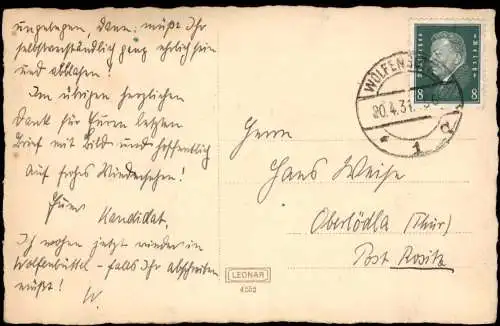 ungelegen, dann müßt Ihr
selbstverständlich ganz ehrlich sein
und abblasen!
Im übrigen herzlichen
Dank für Euren letzten
Brief mit Bild und hoffentlich
Auf frohes Wiedersehen!
Euer Kandidat.
Ich wohne jetzt wieder in
Wolfenbüttel - falls Ihr abschreiben
müßt!
W.
WOLFENB
20.4.31.
1 d
8 8
Herrn
Hans Weise
Oberlödla (Thür)
Post Rositz
LEONAR